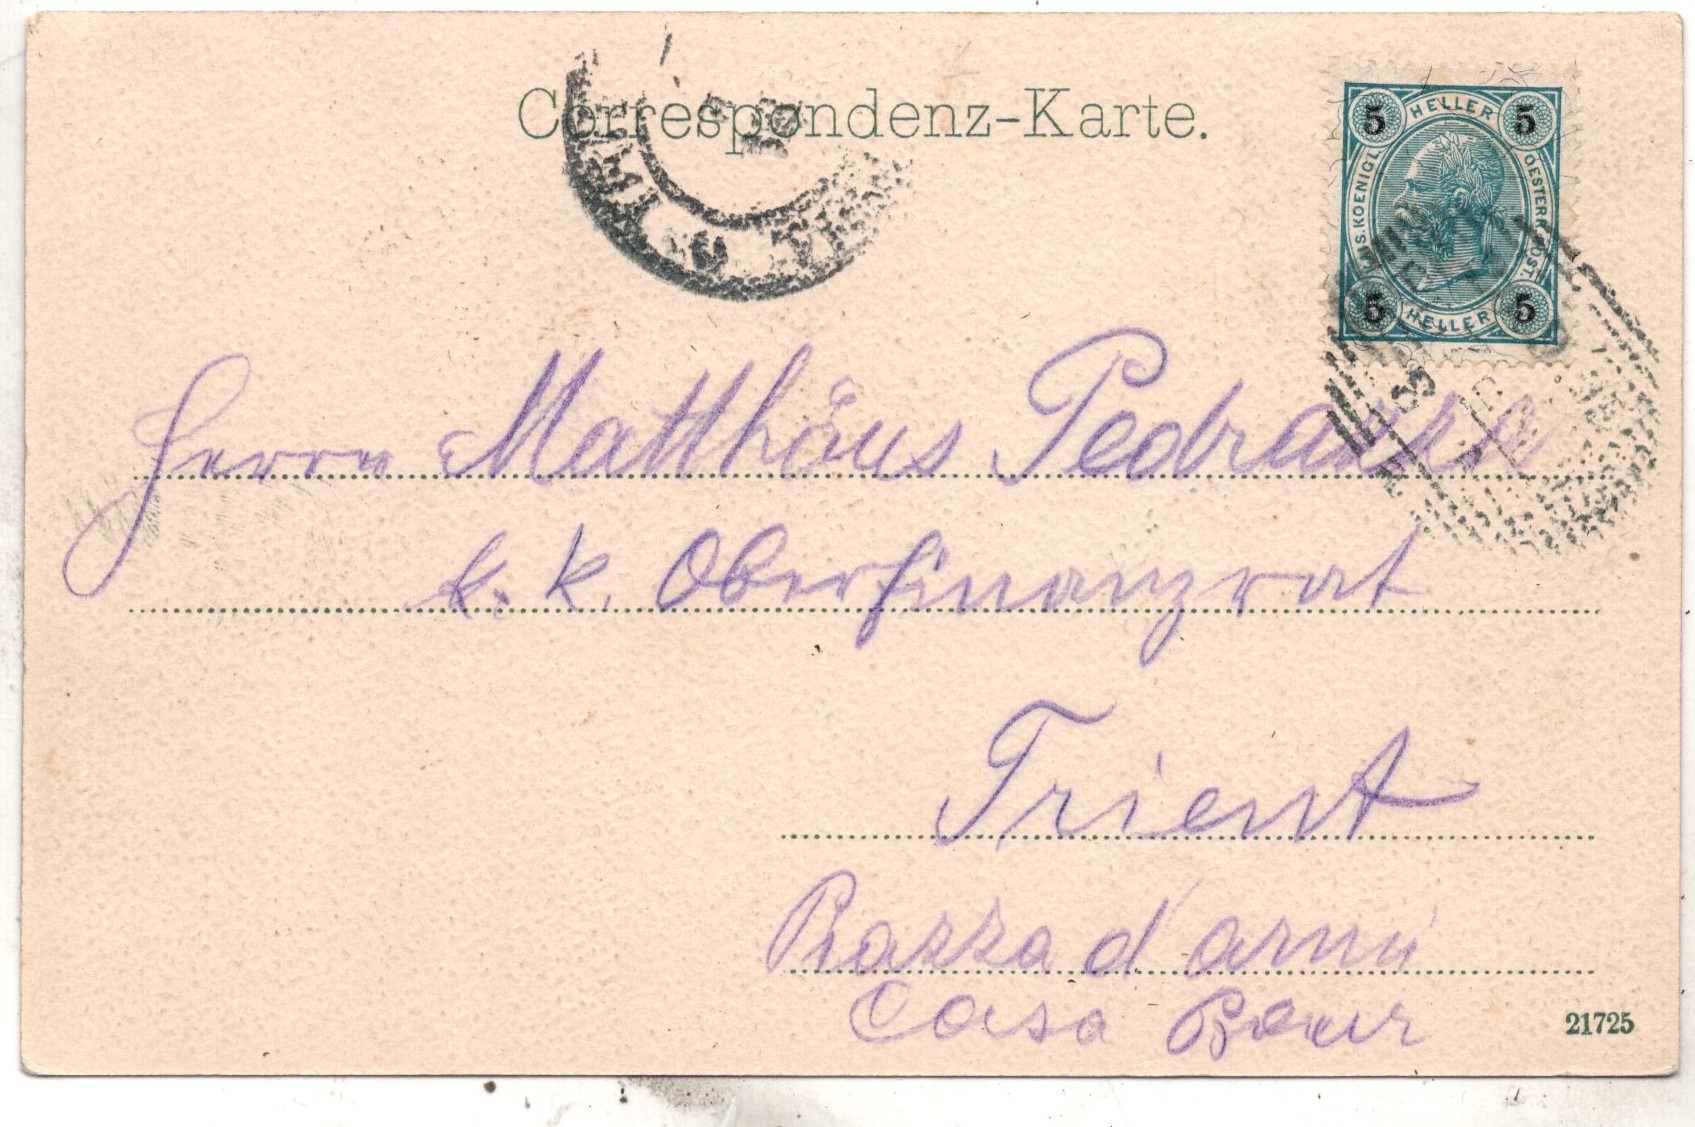 Correspondenz-Karte.
5 HELLER 5
KAIS. KOENIGL. OESTERR. POST.
5 HELLER 5
TRIENT
Herrn Matthäus Pedrazza
k. k. Oberfinanzrat
Trient
Piazza d'armi
Casa
21725